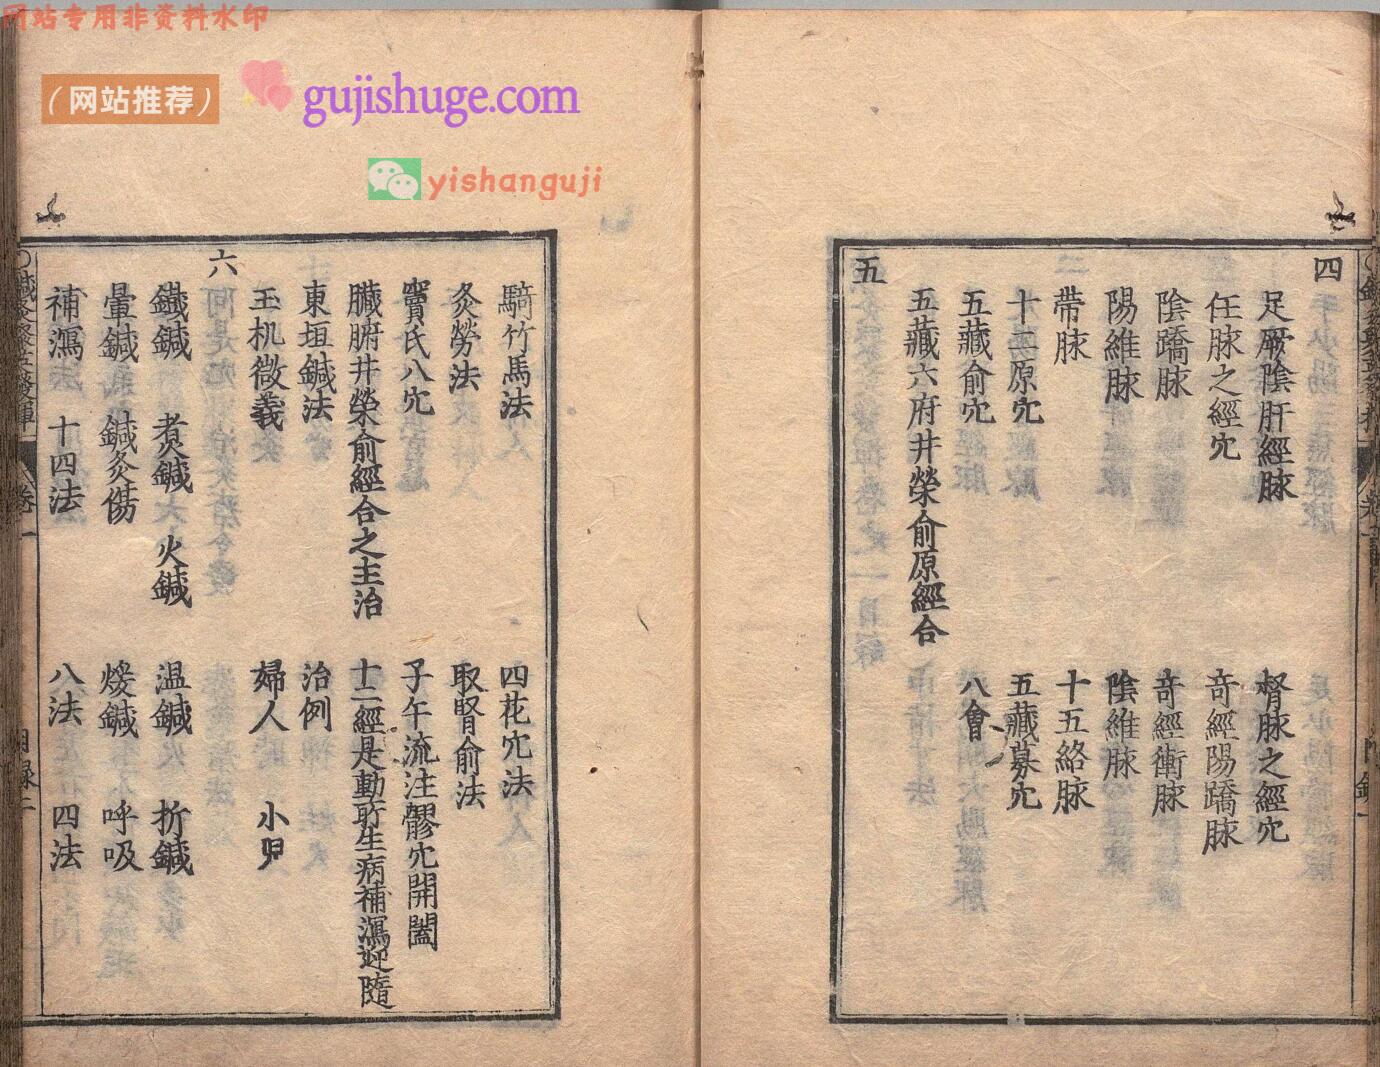 网站专用非资料水印
（网站推荐）
gujishuge.com
yishanguji
四
足厥陰肝經脉
督脉之經穴
任脉之經穴
竒經陽蹻脉
陰蹻脉
竒經衝脉
陽維脉
陰維脉
帶脉
十五絡脉
十二原穴
五藏募穴
五藏俞穴
八會
五藏六府井榮俞原經合
五
騎竹馬法
四花穴法
灸勞法
取腎俞法
竇氏八穴
子午流注髎穴開闔
臟腑井榮俞經合之主治
十二經是動所生病補瀉迎隨
東垣鍼法
治例
玉机微義
婦人
小兒
六
鐵鍼
煮鍼
火鍼
温鍼
折鍼
暈鍼
鍼灸傷
煖鍼
呼吸
補瀉
十四法
八法
四法
卷一
目録二